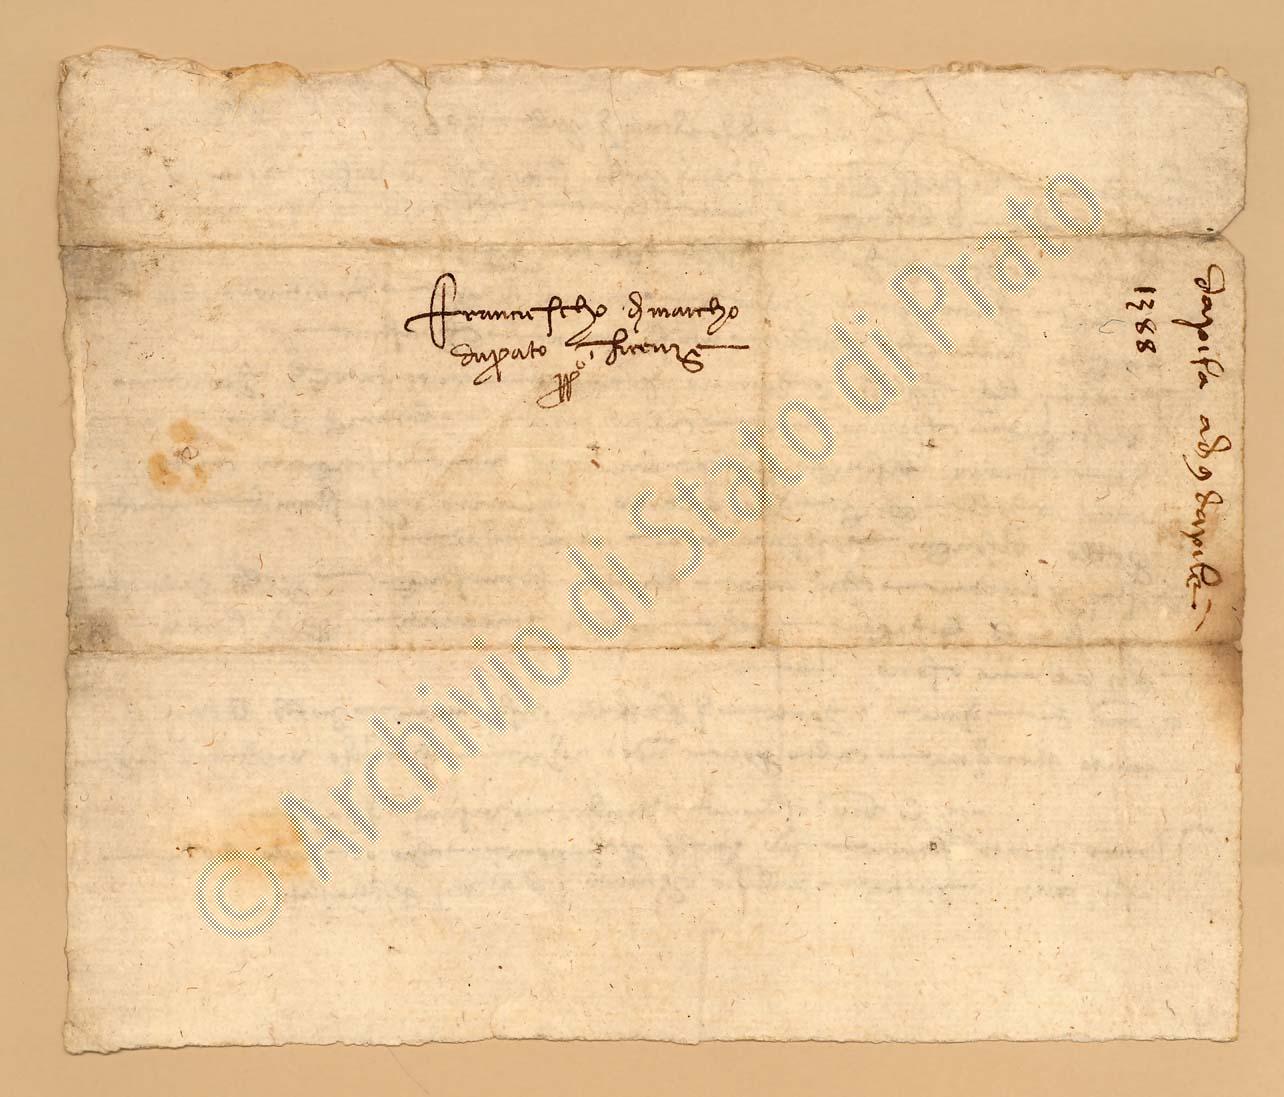 Franciescho di Marcho
da Prato i Firenze
propio
da Pisa a dì 9 d'aprile
1388
© Archivio di Stato di Prato